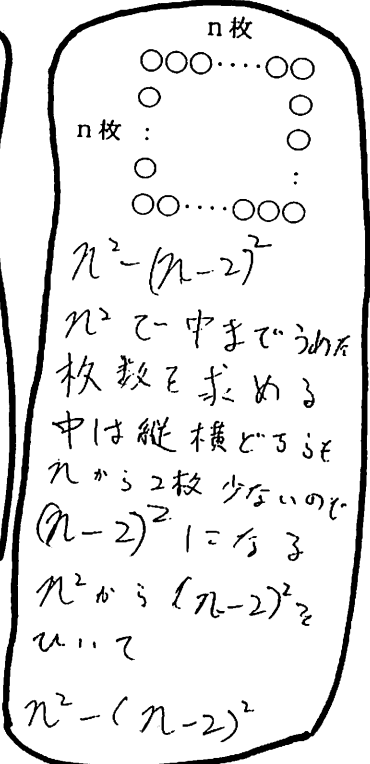 n枚
n枚
n²-(n-2)²
n²で中までうめた
枚数を求める
中は縦横どちらも
nから2枚少ないので
(n-2)²になる
n²から(n-2)²を
ひいて
n²-(n-2)²